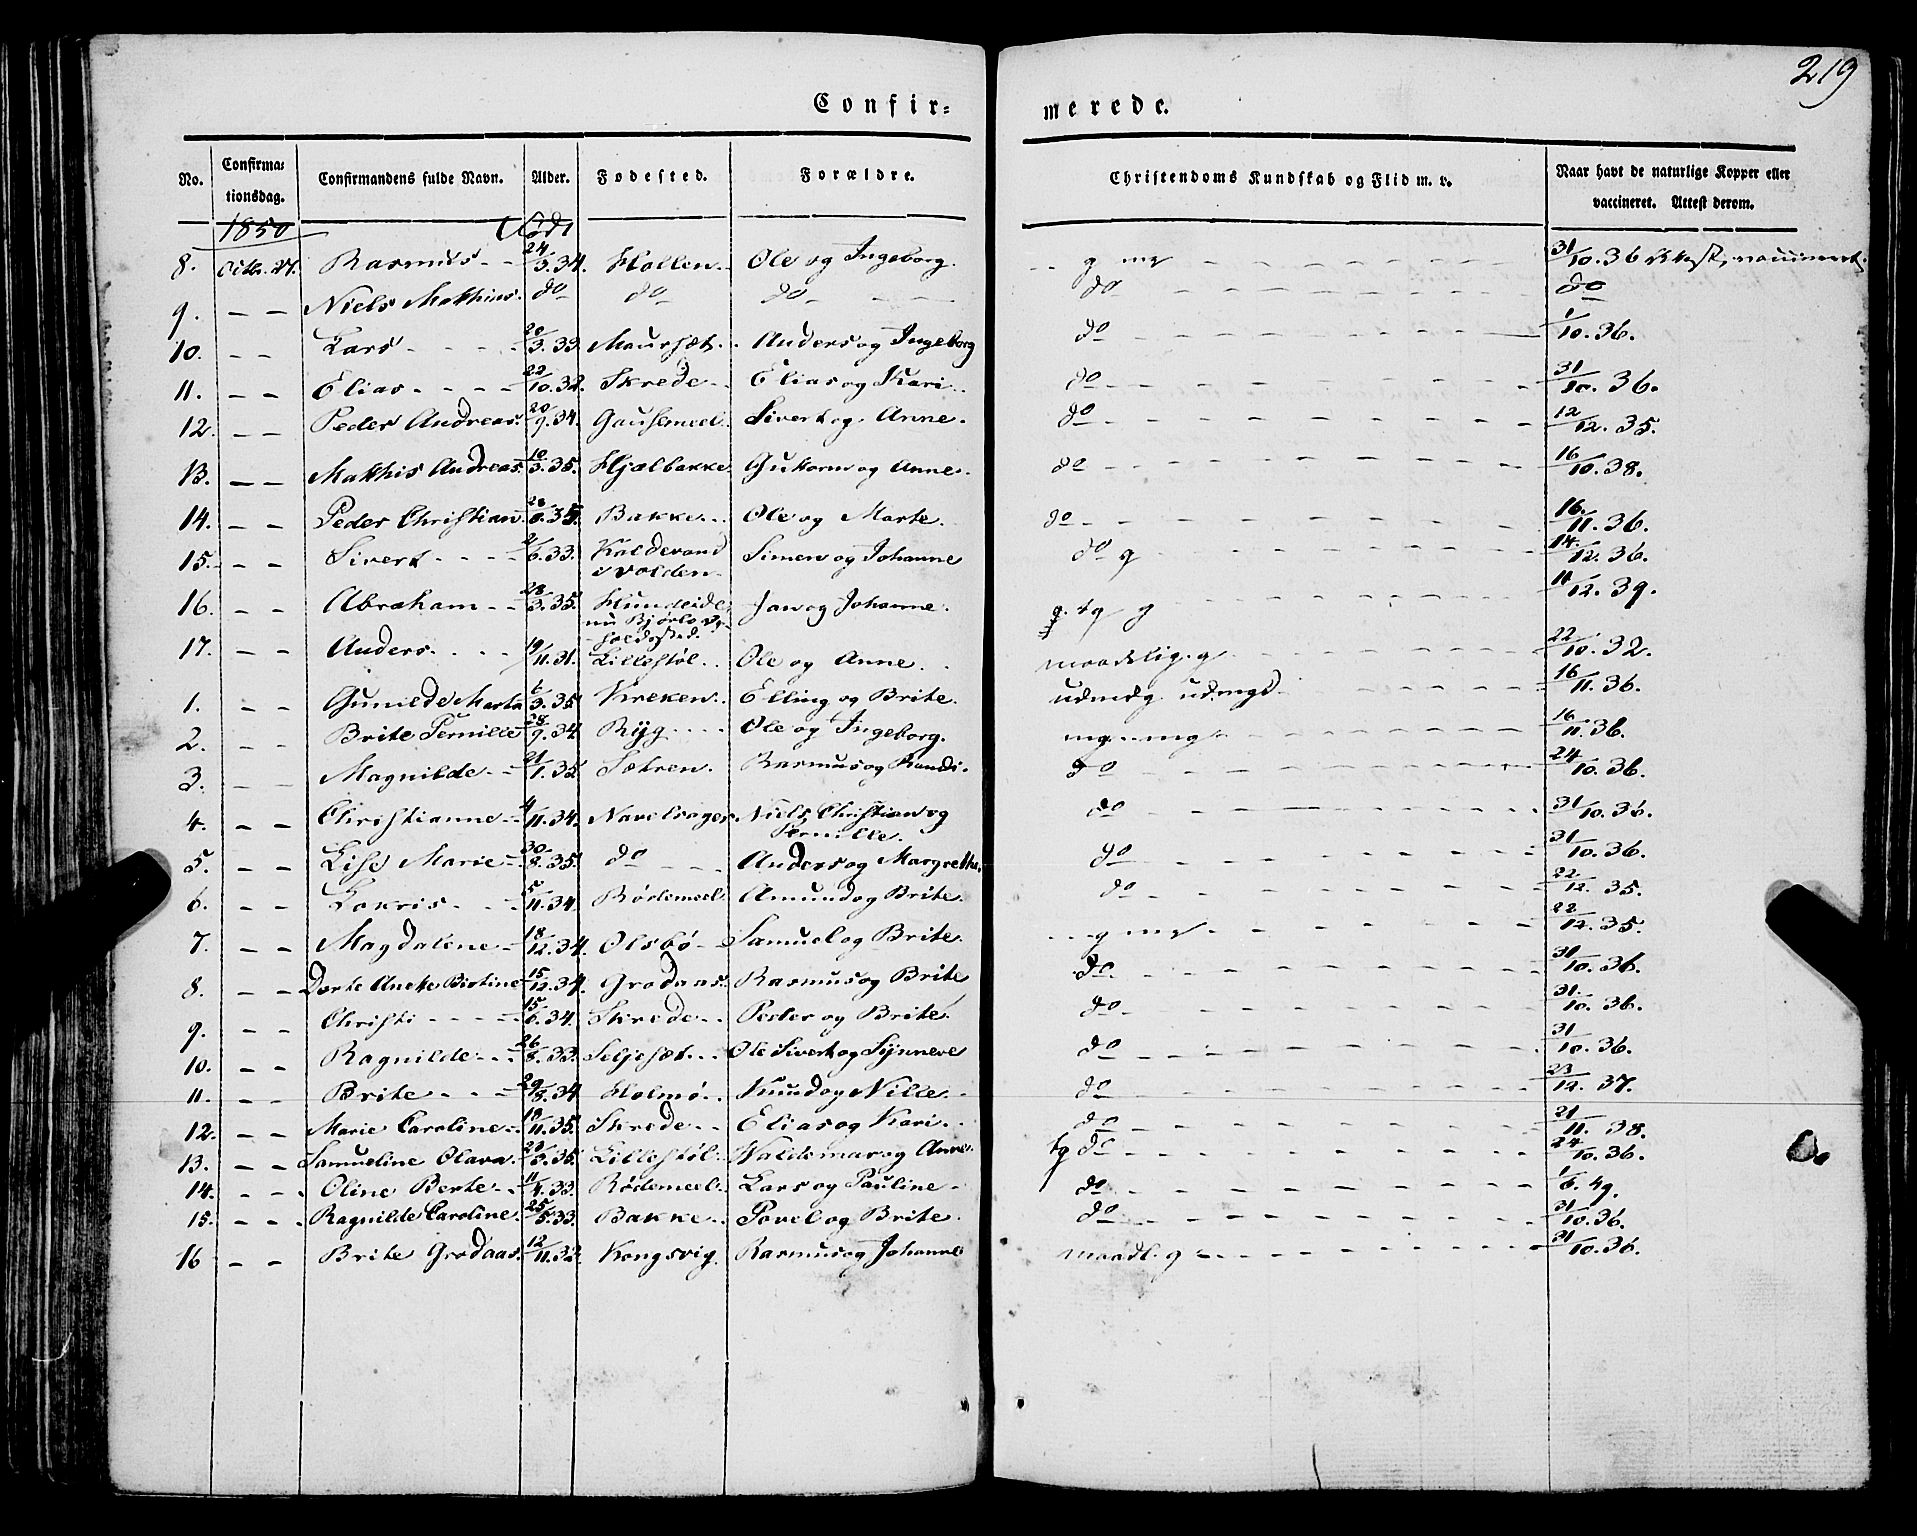 219
Confir=
merede.
No.
Confirma=
tionsdag.
Confirmandens fulde Navn.
Alder.
Fødested.
Forældre.
Christendoms Kundskab og Flid m. v.
Naar havt de naturlige Kopper eller
vaccineret. Attest derom.
1850
Født
8. Octbr. 27. Rasmus - - 24/3.34. Hollen. Ole og Ingeborg. - - g mg 31/10.36
9. - - Niels Mathias. do do do - - - do - - - do
10. - - Lars - - - 20/3.33. Maursæt. Anders og Ingeborg do - - - 1/10.36.
11. - - Elias - - - 22/10.32. Skrede - - Elias og Kari. do - - - 31/10.36.
12. - - Peder Andreas. 20/9.34. Gausemeel. Sivert og Anne. do - - - 12/12.35.
13. - - Mathis Andreas. 10/3.35. Hjelbakke Gutorm og Anne. do - - - 16/10.38.
14. - - Peder Christian. .35. Bakke. Ole og Marte. do - - - 16/11.36.
15. - - Sivert - - - 2/6.33. Koldevand
i Volden
Simen og Johanne do g - - - 14/12.36.
16. - - Abraham - - 28/3.35. Hundeide
nu Bjørlo
Jon og Johanne. g. tg g - - - 11/12.39.
17. Anders. - - - 19/11.31. Lillestøl. Ole og Anne. maadelig. g - - - 22/10.32.
1. - - Gunilde Marta 6/3.35 Kreken. Elling og Brite. udmkg. udmgd. - - - 16/11.36.
2. - - Brite Pernille 28/9.34 Ryg - - - Ole og Ingeborg. mg - mg - - - 16/11.36.
3. - - Magnilde - - 21/1.35. Sætren. Rasmus og Randi. do - - - 24/10.36.
4. - - Christianne - 4/11.34. Navelsager Niels Christian og
Pernille.
do - - - 31/10.36.
5. - - Lise Marie - 30/8.35. do - - - Anders og Margrethe. do - - - 31/10.36.
6. - - Lovris - - - 5/11.34. Rødemeel Amund og Brite. do - - - 22/12.35.
7. - - Magdalene - 18/12.34. Olsbø - Samuel og Brite. - - g mg - - - 22/12.35.
8. - - Dorte Birtine 15/12.34. Grodaas. Rasmus og Brite do - - - 31/10.36.
9. - - Christi - - - 15/6.34. Skrede - - Peder og Brite. do - - - 31/10.36.
10. - - Ragnilde - - 26/8.33. Seljeset - - Ole Sivert og Synneve do - - - 31/10.36.
11. - - Brite - - - 29/8.34 Holmø - - Knud og Nille. do - - - 23/12.37.
12. - - Marie Caroline - 18/11.35. Skrede - Elias og Kari. do - - - 21/11.38.
13. - - Samueline Olava. .35. Lillestøl. Waldemar og Anne. tg do - - - 24/10.36.
14. - - Oline Berte - 11/4.33. Rødemeel. Lars og Pauline - do - - - 1/6.49.
15. - - Ragnilde Caroline. 25/5.33. Bakke - - Povel og Brite. do - - - 31/10.36.
16 - - Brite Grodaas. 12/11.32. Kongsvig. Rasmus og Johanne maadl. g - - - 31/10.36.